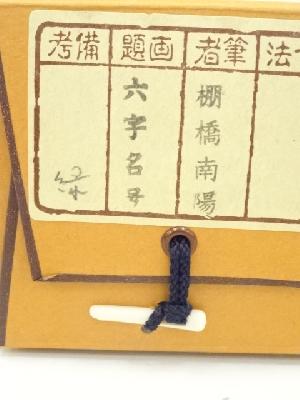 法
筆者
棚橋南陽
画題
六字名号
備考